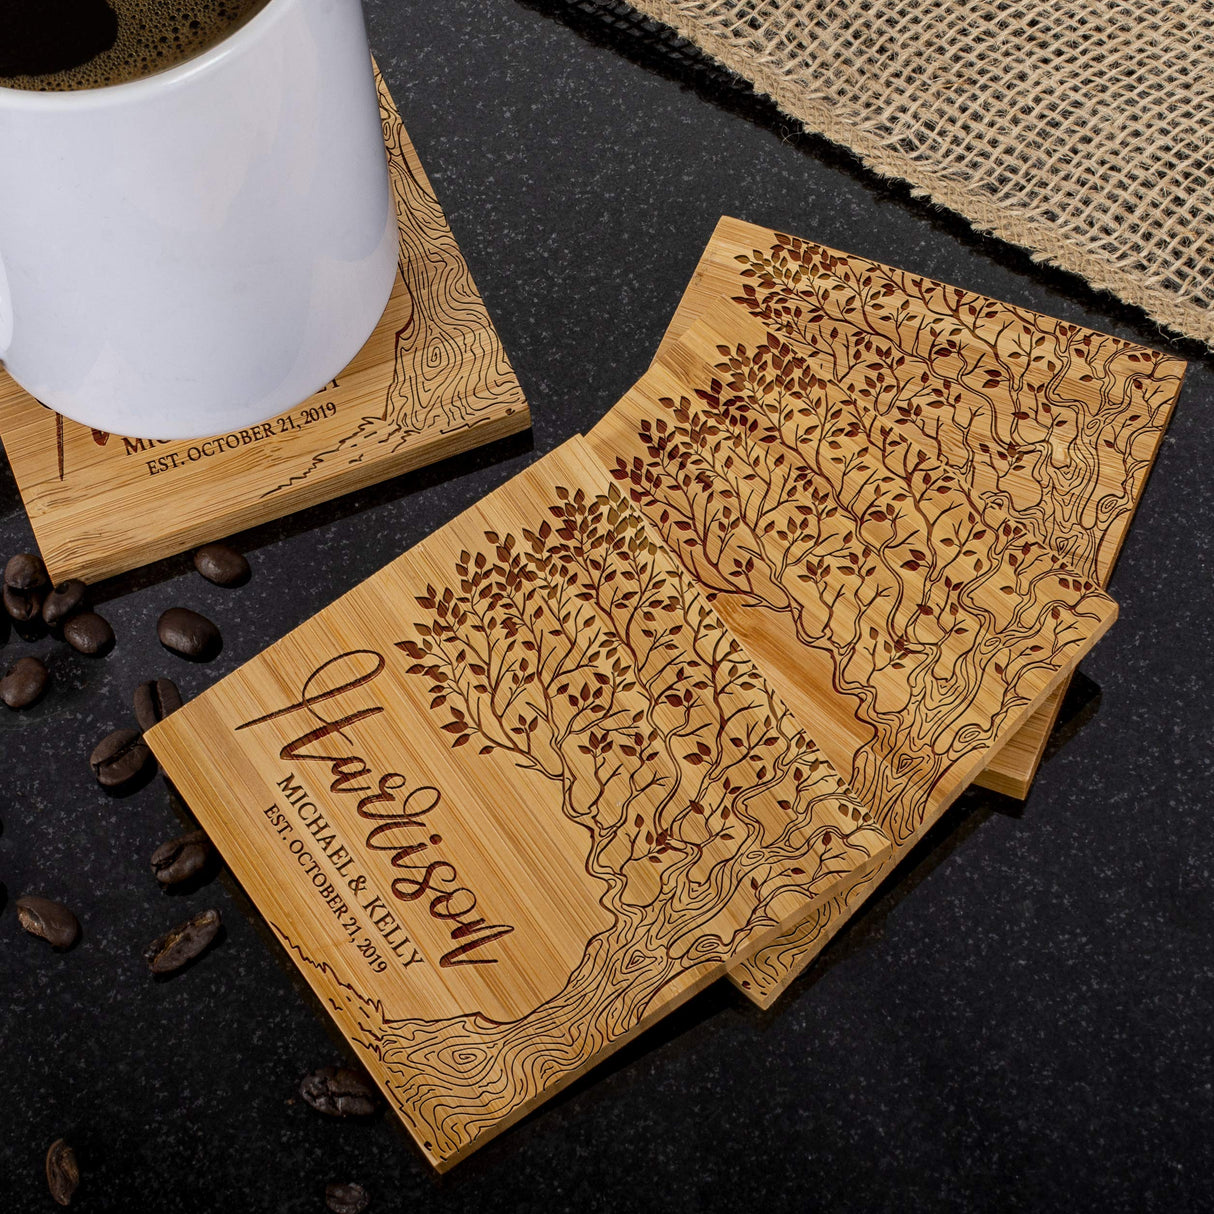 EST. OCTOBER 21, 2019
Harrison
MICHAEL & KELLY
EST. OCTOBER 21, 2019